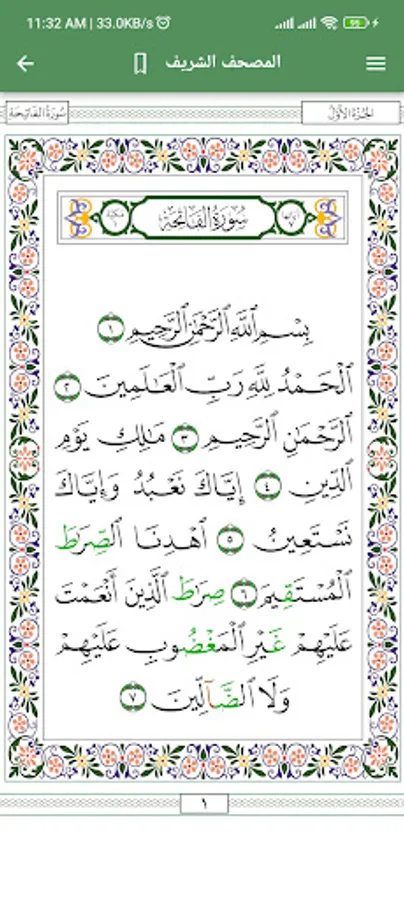 11:32 AM | 33.0KB/s
95
المصحف الشريف
الجزء الأول
سورة الفاتحة
سُورَةُ الْفَاتِحَةِ
بِسْمِ اللَّهِ الرَّحْمَٰنِ الرَّحِيمِ ١
الْحَمْدُ لِلَّهِ رَبِّ الْعَالَمِينَ ٢
الرَّحْمَٰنِ الرَّحِيمِ ٣ مَالِكِ يَوْمِ
الدِّينِ ٤ إِيَّاكَ نَعْبُدُ وَإِيَّاكَ
نَسْتَعِينُ ٥ اهْدِنَا الصِّرَاطَ
الْمُسْتَقِيمَ ٦ صِرَاطَ الَّذِينَ أَنْعَمْتَ
عَلَيْهِمْ غَيْرِ الْمَغْضُوبِ عَلَيْهِمْ
وَلَا الضَّآلِّينَ ٧
١